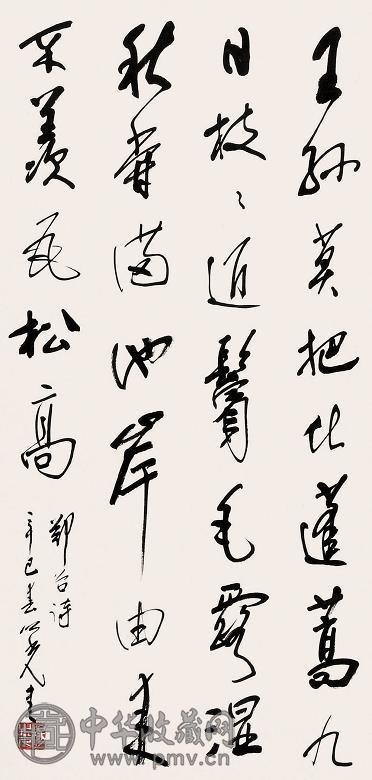 王孫莫把比蓬蒿九
日枝〻近鬢毛露濕
秋香滿池岸由來
不羨瓦松高
鄭谷詩
辛巳春
中华收藏网
www.pmv.cn